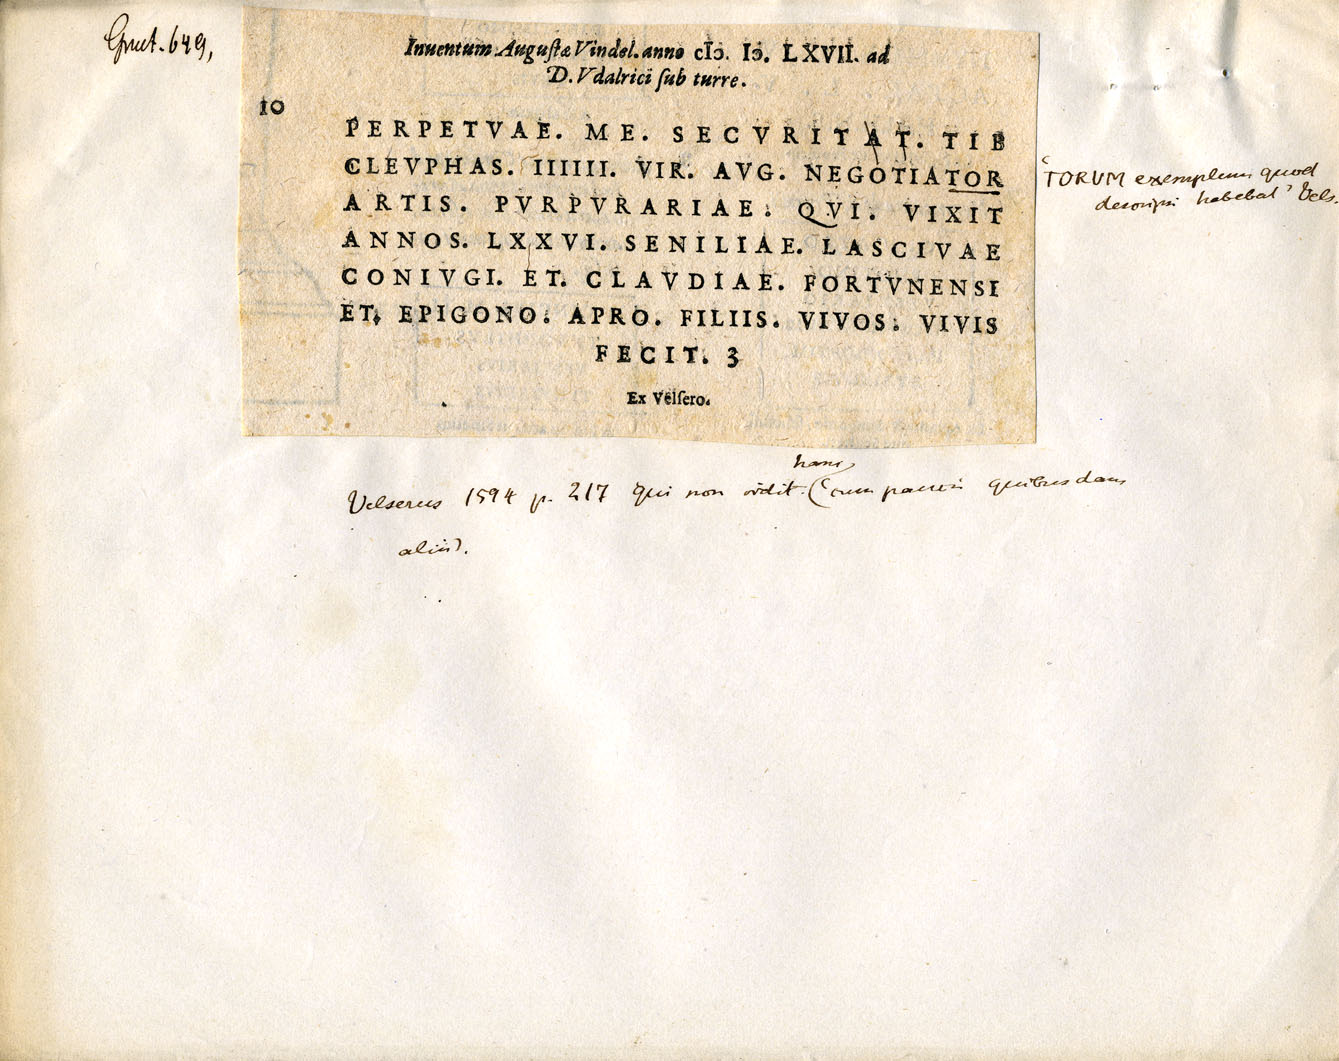 Grut. 649,
Inuentum Augustæ Vindel. anno cIↄ. Iↄ. LXVII. ad
D. Vdalrici sub turre.
10
PERPETVAE. ME. SECVRITAT. TIB
CLEVPHAS. IIIIII. VIR. AVG. NEGOTIATOR
ARTIS. PVRPVRARIAE. QVI. VIXIT
ANNOS. LXXVI. SENILIAE. LASCIVAE
CONIVGI. ET. CLAVDIAE. FORTVNENSI
ET. EPIGONO. APRO. FILIIS. VIVOS. VIVIS
FECIT. 3
Ex Velsero.
'TORUM exemplum quod
descripsi habebat' Vels.
hanc
Velserus 1594 p. 217 qui non vidit (cum paucis quibusdam
aliis).